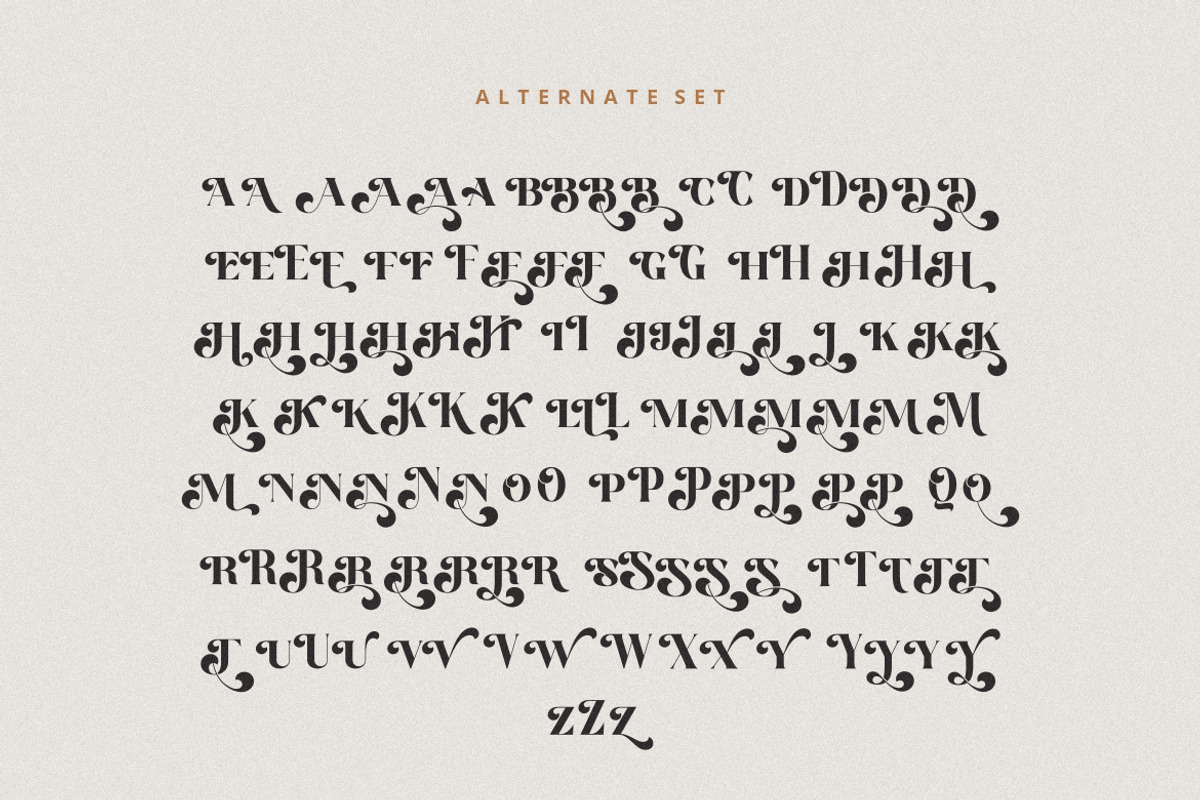 ALTERNATE SET
AA AAAAA BBBB CC DDDDD
EEEE FF FFFF GG HH HHH
HHHHHH II JJJJJ J K KK
K KKKKK LLL MMMMMM
M NNNNN OO PPPPP PP QQ
RRRR RRRR SSSSS TTTTT
T UUU VVVWWXXY YYYY
ZZZ